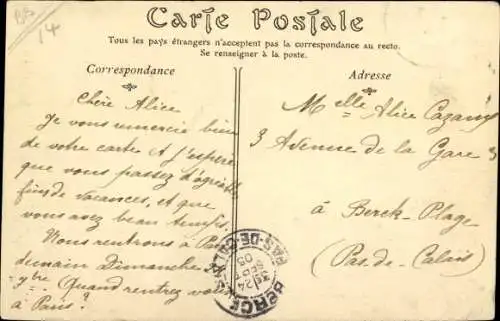 BB
14
Carte Postale
Tous les pays étrangers n'acceptent pas la correspondance au recto.
Se renseigner à la poste.
Correspondance
Chère Alice
Je vous remercie bien
de votre carte et j'espère
que vous passez d'agréables
fins de vacances, et que
vous avez beau temps.
Nous rentrons à Paris
demain Dimanche
Quand rentrez vous
à Paris?
Adresse
Melle Alice
3 Avenue de la Gare 3
à Berck-Plage
(Pas-de-Calais)
BERCK
PAS-DE-CALAIS
24
05